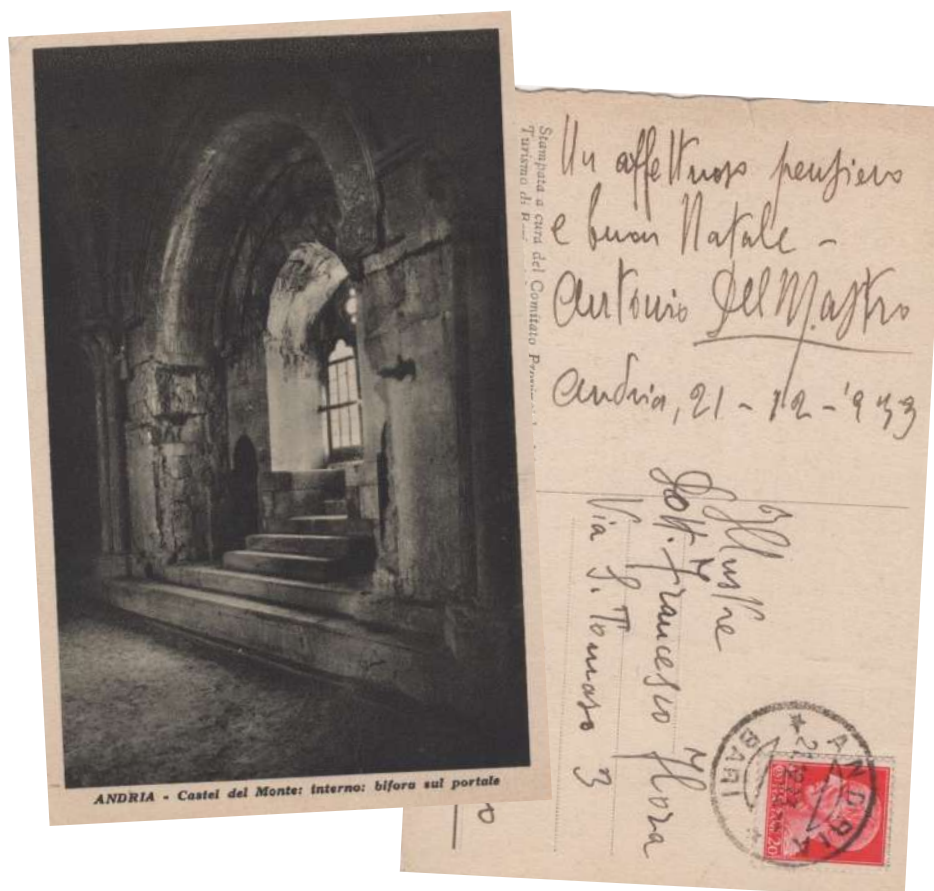 ANDRIA - Castel del Monte: interno: bifora sul portale
Stampata a cura del Comitato
Turismo di
Un affettuoso pensiero
e buon Natale -
Antonio Del Mastro
Andria, 21 - 12 - '933
Illustre
Dott. Francesco Flora
Via S. Tomaso 3
o
ANDRIA
BARI
20